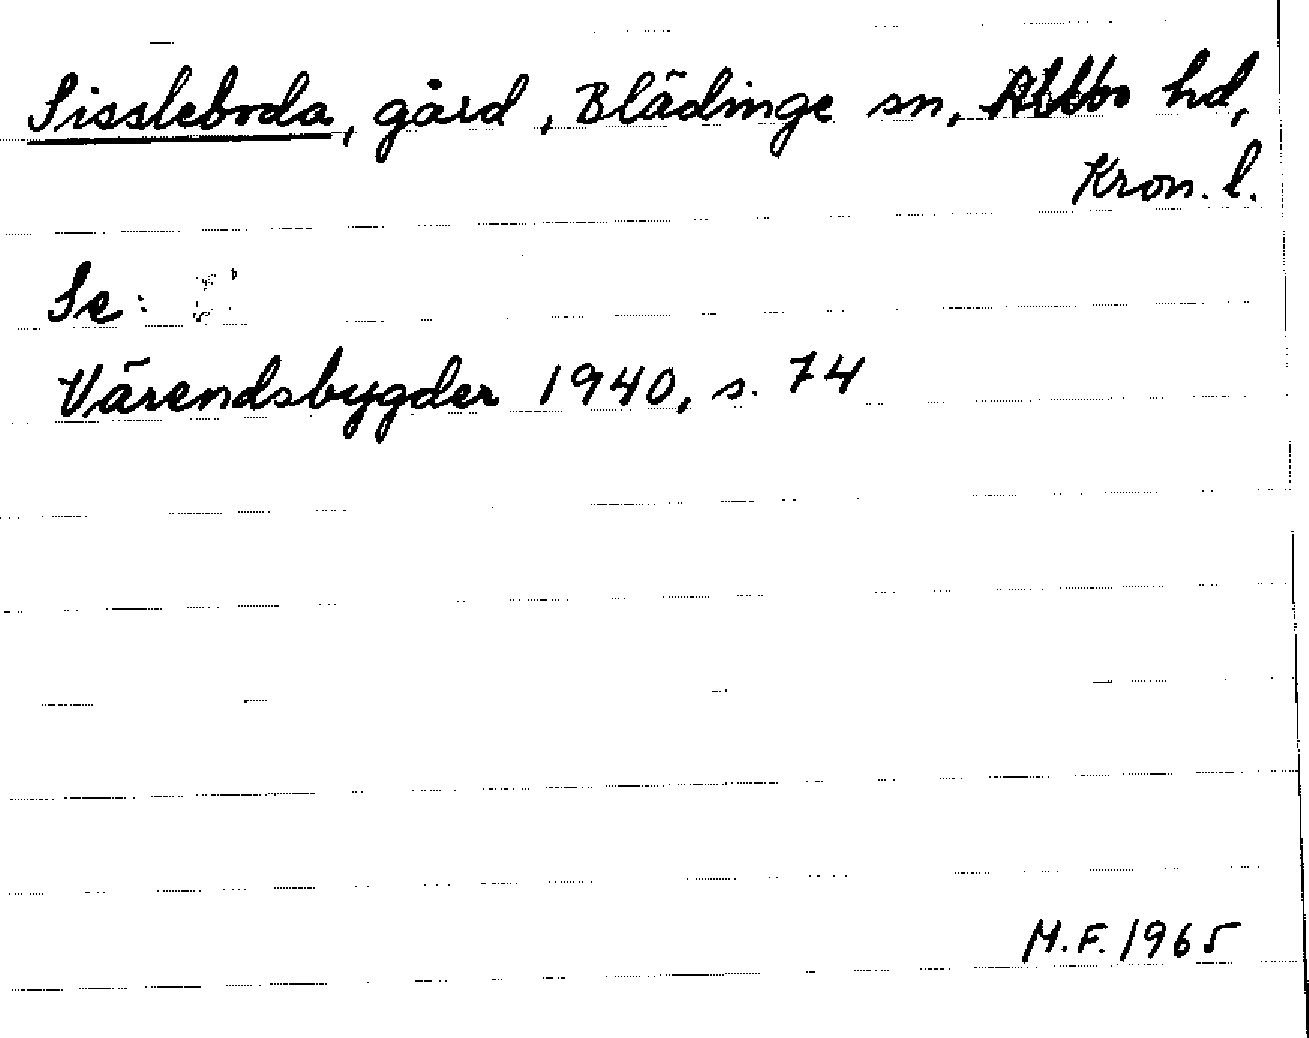 Sissleboda, gård, Blädinge sn, Allbo hd,
Kron. l.
Se:
Värendsbygder 1940, s. 74
M.F. 1965